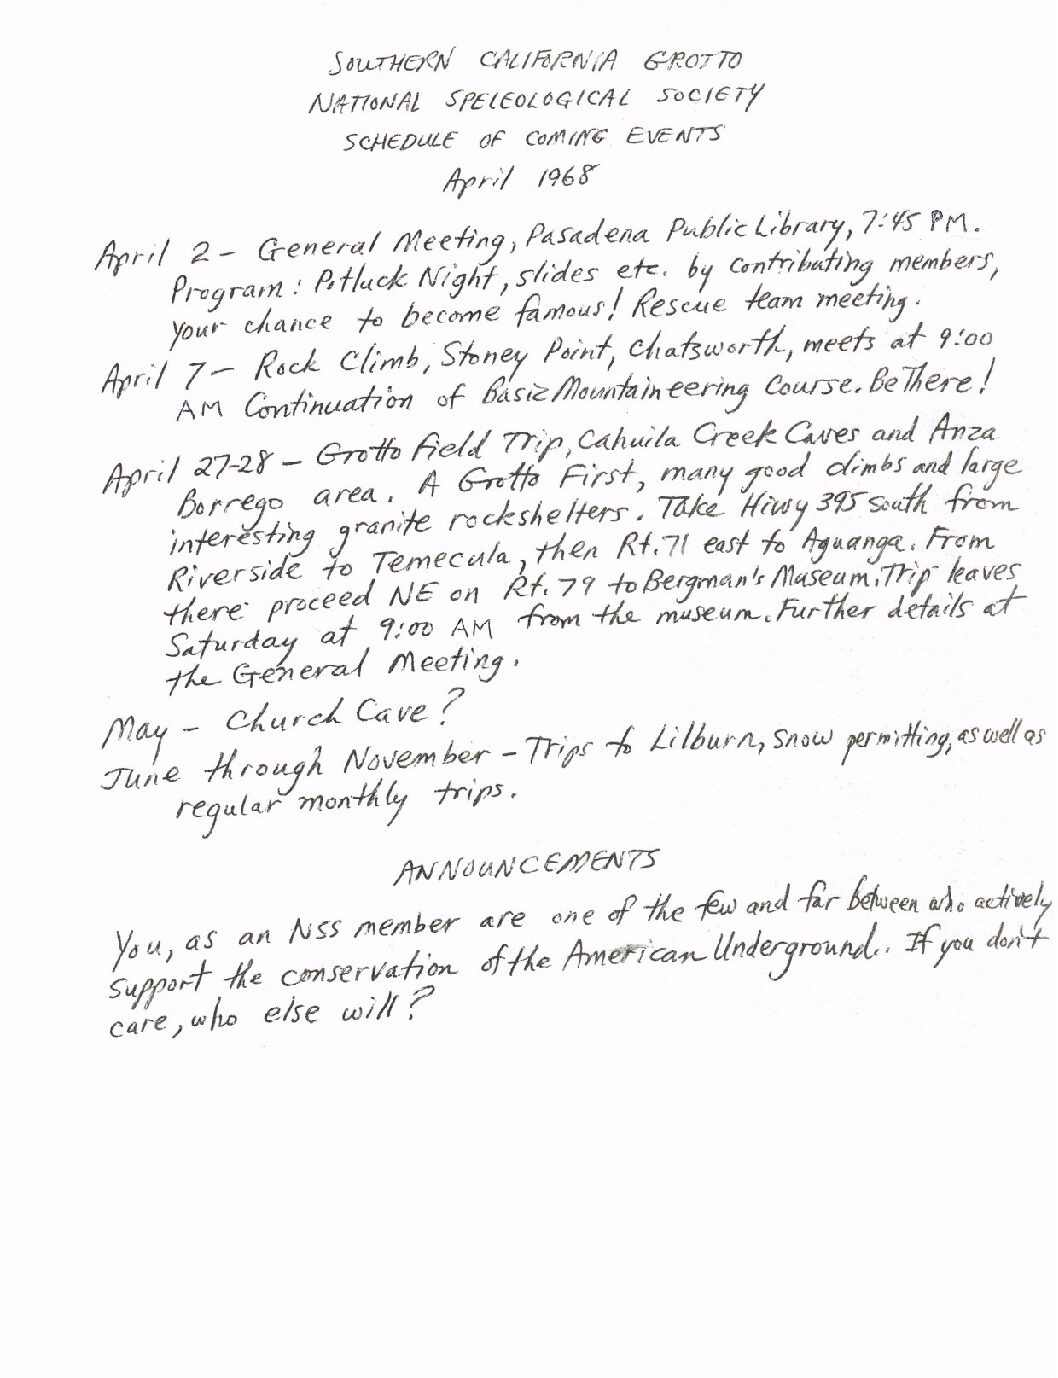 SOUTHERN CALIFORNIA GROTTO
NATIONAL SPELEOLOGICAL SOCIETY
SCHEDULE OF COMING EVENTS
April 1968
April 2 - General Meeting, Pasadena Public Library, 7:45 PM.
Program: Potluck Night, slides etc. by contributing members,
your chance to become famous! Rescue team meeting.
April 7 - Rock Climb, Stoney Point, Chatsworth, meets at 9:00
AM Continuation of Basic Mountaineering Course. Be There!
April 27-28 - Grotto Field Trip, Cahuila Creek Caves and Anza
Borrego area. A Grotto First, many good climbs and large
interesting granite rockshelters. Take Hiwy 395 south from
Riverside to Temecula, then Rt. 71 east to Aguanga. From
there proceed NE on Rt. 79 to Bergman's Museum. Trip leaves
Saturday at 9:00 AM from the museum. Further details at
the General Meeting.
May - Church Cave?
June through November - Trips to Lilburn, snow permitting, as well as
regular monthly trips.
ANNOUNCEMENTS
You, as an NSS member are one of the few and far between who actively
support the conservation of the American Underground.. If you don't
care, who else will?